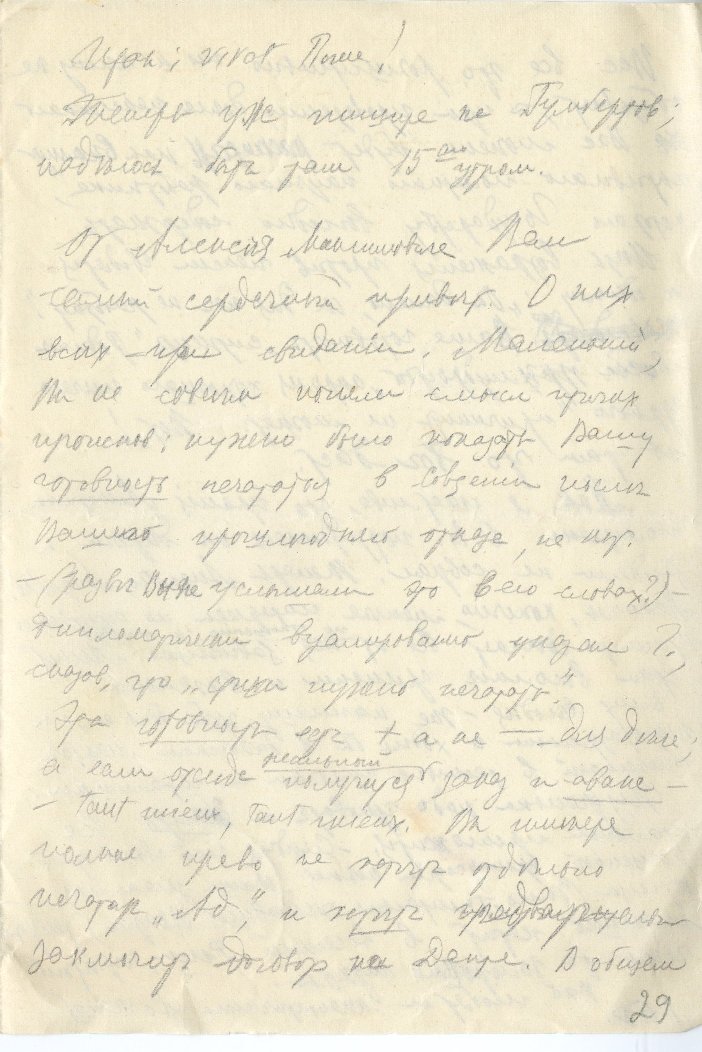 Теперь уж пишите на Гумбертов;
надеюсь быть там 15ого утром.
От Алексея Максимовича Вам
сердечный привет. О них
всех при свидании. Маленький,
Вы не совсем поняли смысл
нужно было показать Вашу
готовность печататься в после
Вашего прошлогоднего отказа, не
— (разве Вы не услышали это в его словах?) —
дипломатически вуалировано указал Г.,
сказав, что „стихи нужно печатать".
Эта готовность есть + а не — для Данте;
а если отсюда реальный получится заказ и аванс —
— tant mieux, tant mieux. Вы имеете
полное право не хотеть отдельно
печатать „Ад", и хотеть предварительно
заключить договор на Данте. В общем
29